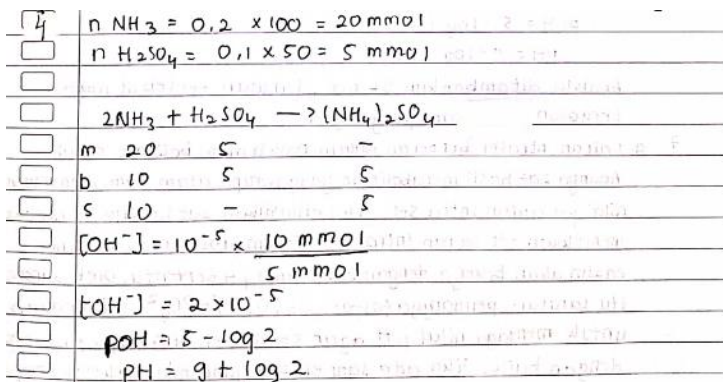 4 n NH3 = 0,2 x 100 = 20 mmol
n H2SO4 = 0,1 x 50 = 5 mmol
2NH3 + H2SO4 —> (NH4)2SO4
m 20 5 -
b 10 5 5
s 10 - 5
[OH⁻] = 10⁻⁵ x 10 mmol
5 mmol
[OH⁻] = 2 x 10⁻⁵
pOH = 5 - log 2
PH = 9 + log 2